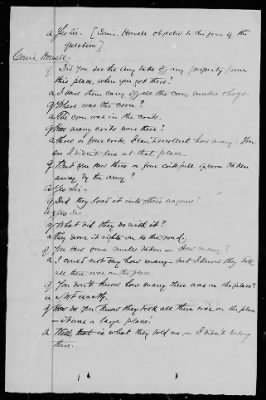 a Yes Sir. [Comr. Howell objected to the form of the
question]
Comr Howell.
q Did you see the army take off any property from
this place, when you got there?
a I saw them carry off all the corn, mules & hogs.
q Where was the corn?
a The corn was in the crib.
q How many cribs were there?
a Three or four cribs. I can't recollect how many.
as I didn't live at that place.
q That you saw three or four cribs full of corn taken
away by the army?
a Yes Sir.
q Did they load it into their wagons?
a Yes Sir
q What did they do with it?
a They drove it right on in the road.
q You saw some mules taken – How many?
a I could not say how many – but I know they took
all there was on the place.
q You don't know how many there was on the place?
a Not exactly.
q How do you know they took all there was on the place
– it was a large place?
a Well that is what they told me. – I didn't belong
there.